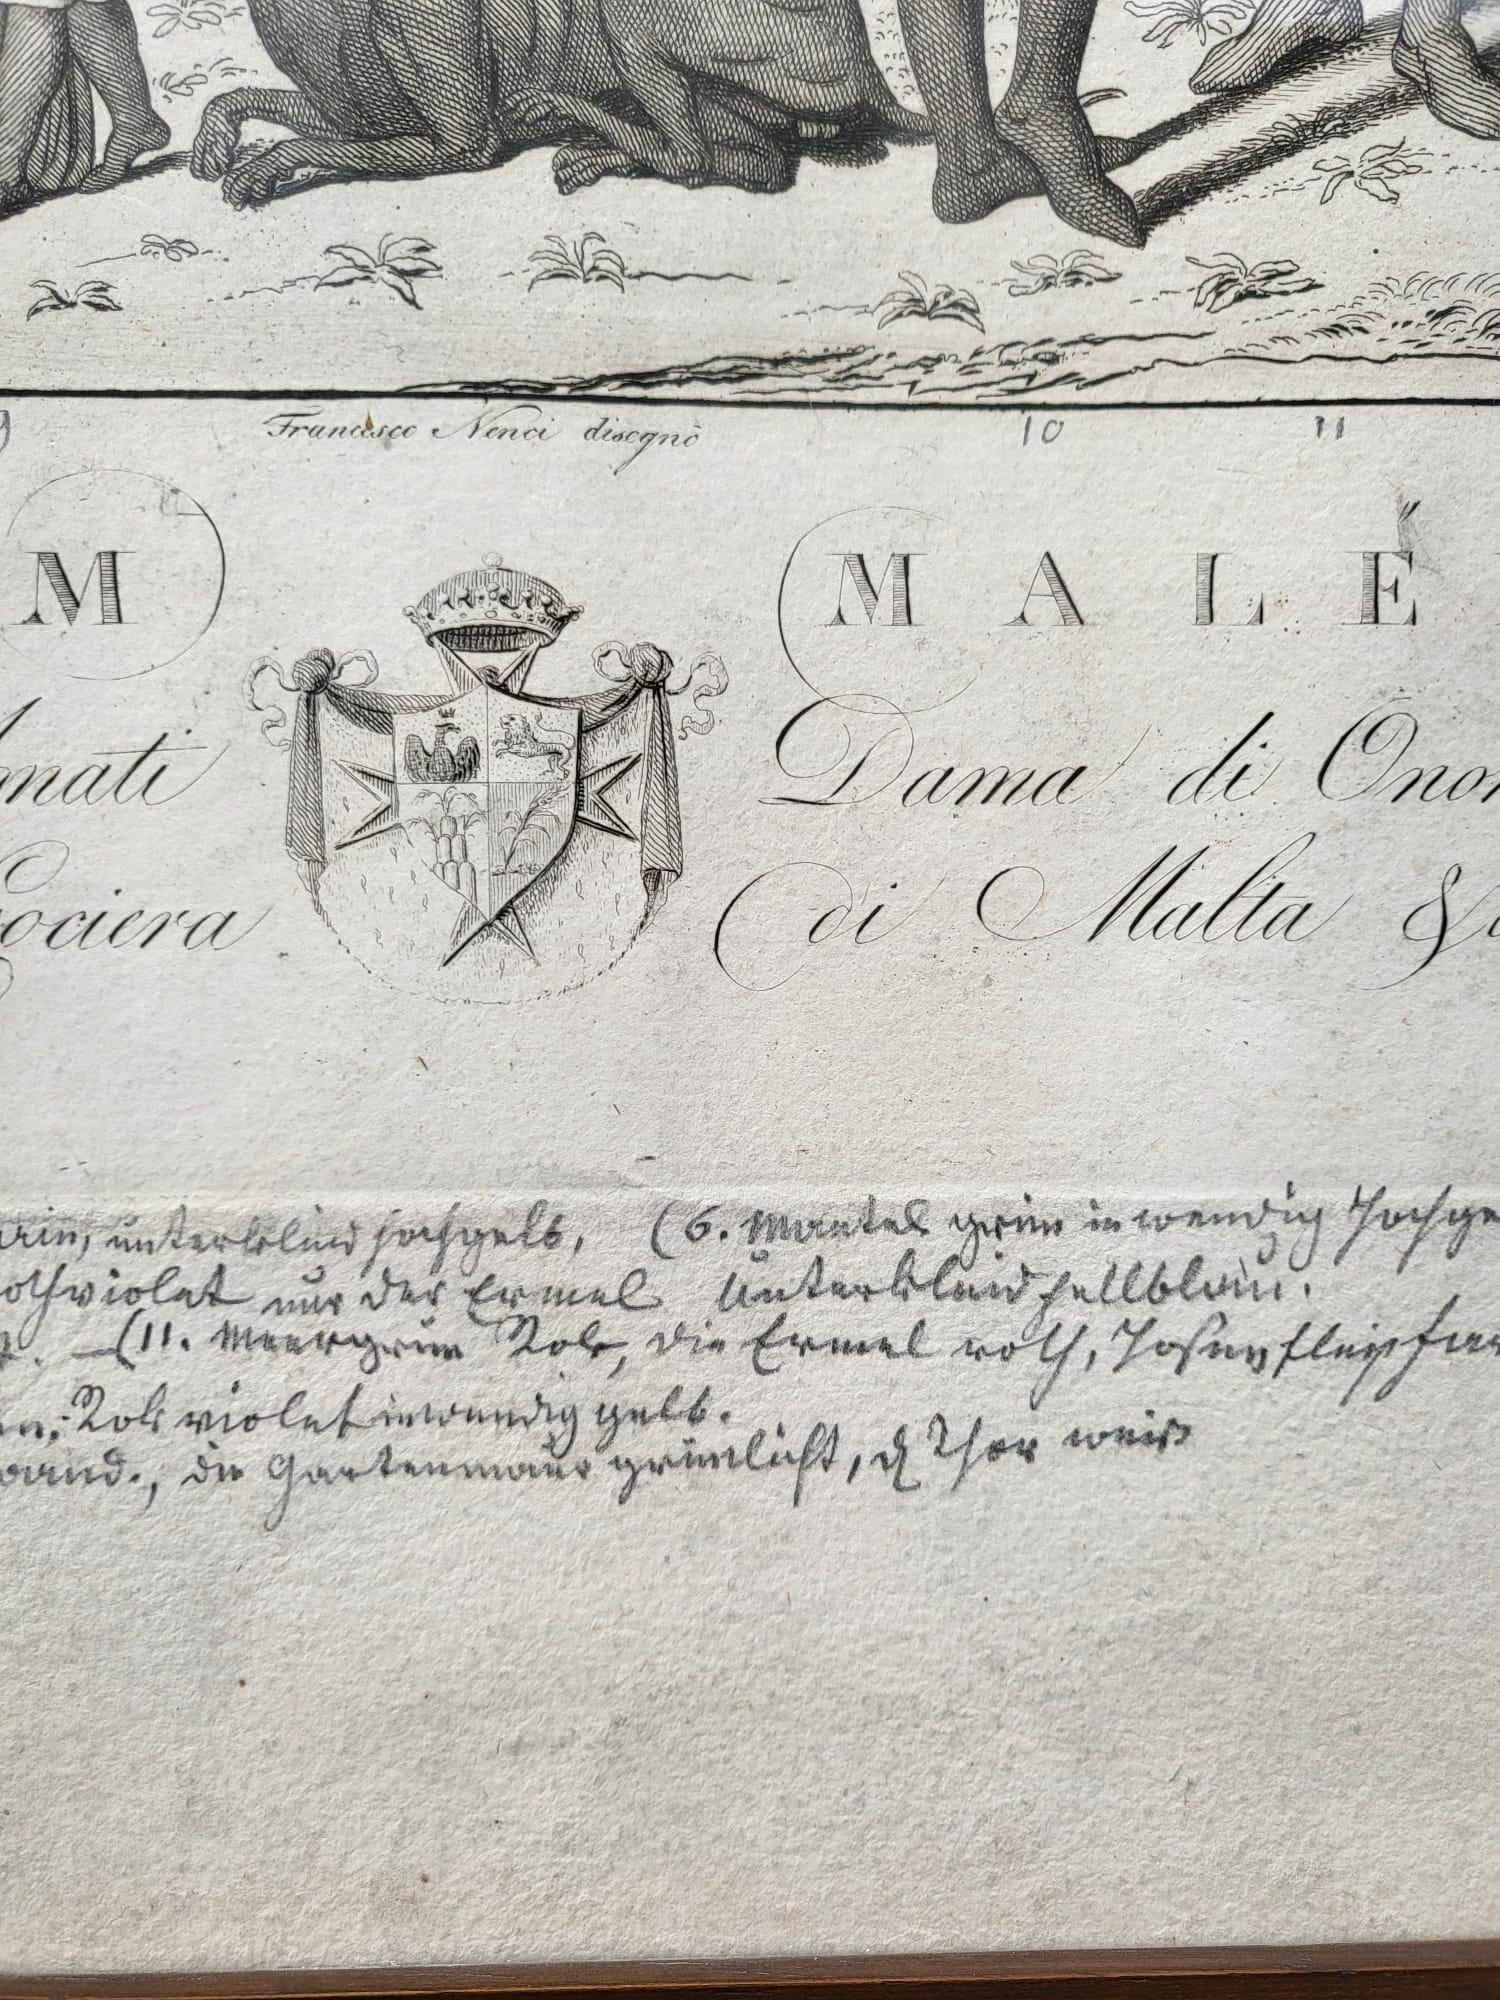 9 Francesco Nenci disegnò 10 11
M MALÉ
nati Dama di Onor
ociera di Malta &
unterkleid hochgelb, (6. Mantel grün inwendig hochge
othviolet nur der Ermel Unterkleid hellblau.
(11. Meergrün Rok, die Ermel roth, Hosen fleischfar
Rok violet inwendig gelb.
die Gartenmauer grünlicht, d Thor weis